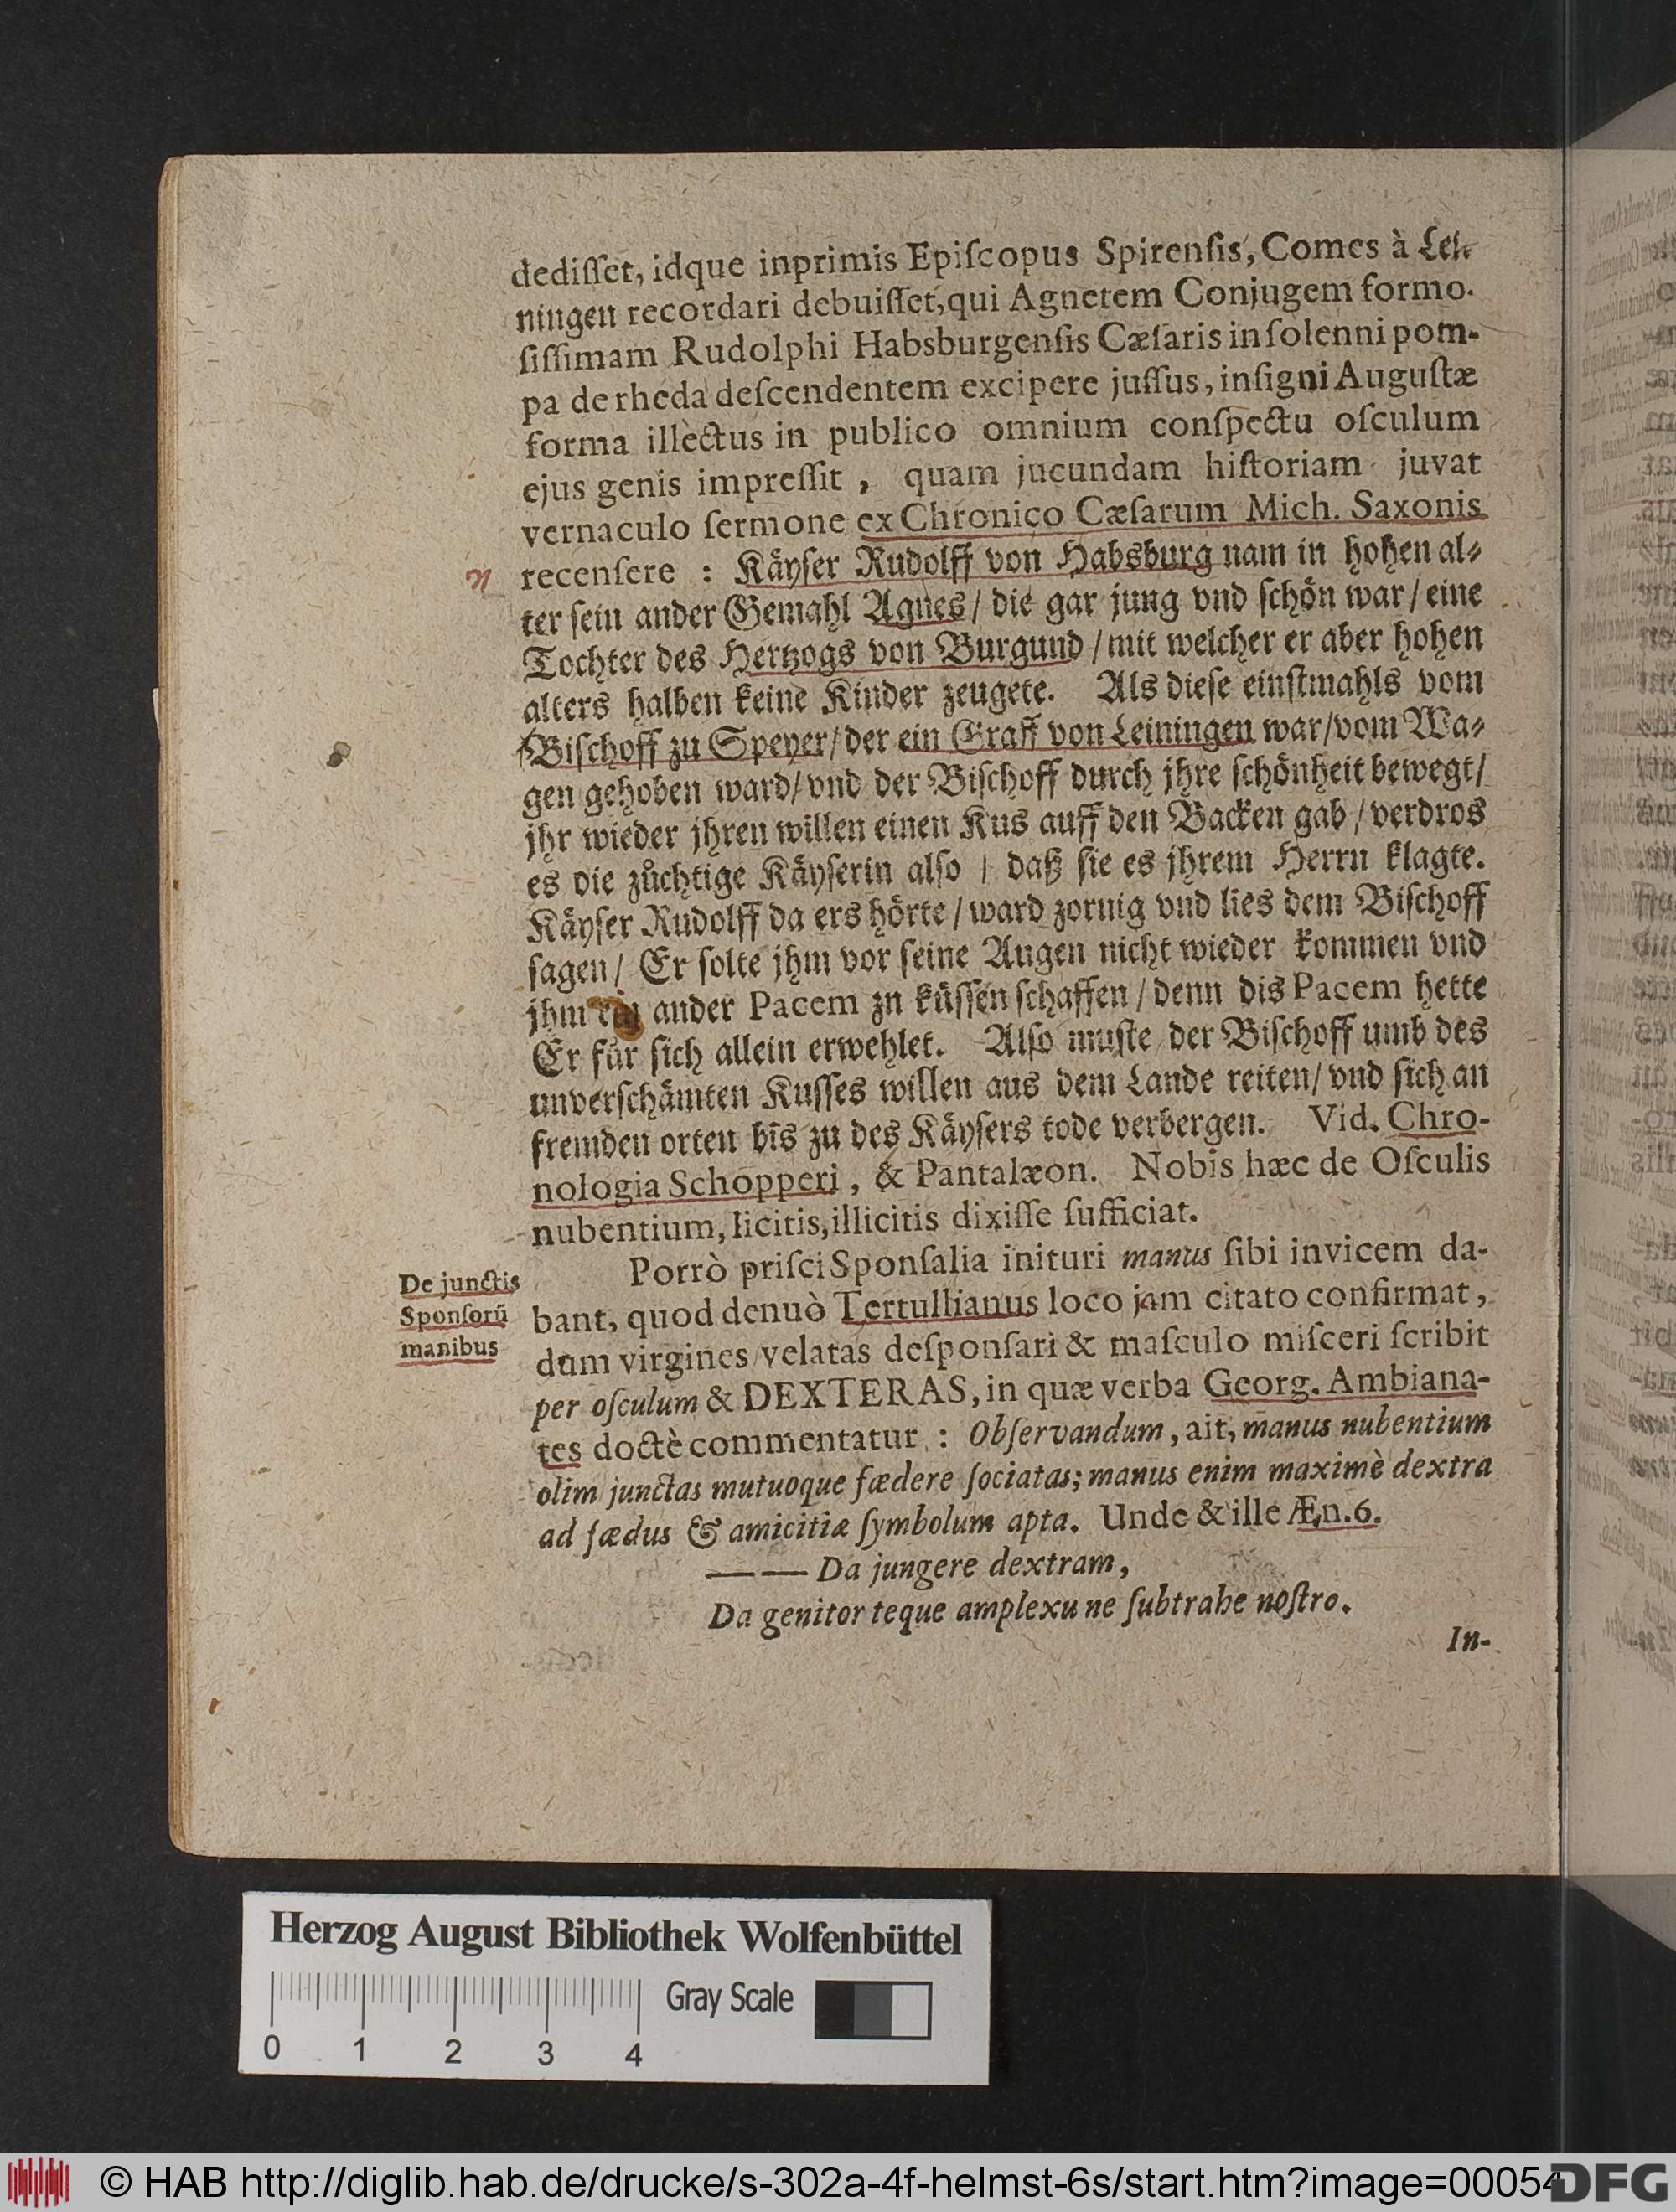 dediſſet, idque inprimis Epiſcopus Spirenſis, Comes à Lei-
ningen recordari debuiſſet, qui Agnetem Conjugem formo-
ſiſſimam Rudolphi Habsburgenſis Cæſaris in ſolenni pom-
pa de rheda deſcendentem excipere juſſus, inſigni Auguſtæ
forma illectus in publico omnium conſpectu oſculum
ejus genis impreſſit, quam jucundam hiſtoriam juvat
vernaculo ſermone ex Chronico Cæſarum Mich. Saxonis
recenſere : Käyſer Rudolff von Habsburg nam in hohen al-
ter ſein ander Gemahl Agnes / die gar jung vnd ſchön war / eine
Tochter des Hertzogs von Burgund / mit welcher er aber hohen
alters halben keine Kinder zeugete. Als dieſe einſtmahls vom
Biſchoff zu Speyer / der ein Graff von Leiningen war / vom Wa-
gen gehoben ward / vnd der Biſchoff durch jhre ſchönheit bewegt /
jhr wieder jhren willen einen Kus auff den Backen gab / verdros
es die züchtige Käyſerin alſo / daß ſie es jhrem Herrn klagte.
Käyſer Rudolff da ers hörte / ward zornig vnd lies dem Biſchoff
ſagen / Er ſolte jhm vor ſeine Augen nicht wieder kommen vnd
jhm ein ander Pacem zu küſſen ſchaffen / denn dis Pacem hette
Er für ſich allein erwehlet. Alſo muſte der Biſchoff umb des
unverſchämten Kuſſes willen aus dem Lande reiten / vnd ſich an
fremden orten bis zu des Käyſers tode verbergen. Vid. Chro-
nologia Schopperi, & Pantalæon. Nobis hæc de Oſculis
nubentium, licitis, illicitis dixiſſe ſufficiat.
De junctis
Sponſorū
manibus
Porrò priſci Sponſalia inituri manus ſibi invicem da-
bant, quod denuò Tertullianus loco jam citato confirmat,
dum virgines velatas deſponſari & maſculo miſceri ſcribit
per oſculum & DEXTERAS, in quæ verba Georg. Ambiana-
tes doctè commentatur : Obſervandum, ait, manus nubentium
olim junctas mutuoque fædere ſociatas; manus enim maximè dextra
ad fædus & amicitiæ ſymbolum apta. Unde & ille Æn. 6.
—— Da jungere dextram,
Da genitor teque amplexu ne ſubtrahe noſtro.
In-
Herzog August Bibliothek Wolfenbüttel
Gray Scale
0 1 2 3 4
© HAB http://diglib.hab.de/drucke/s-302a-4f-helmst-6s/start.htm?image=00054
DFG